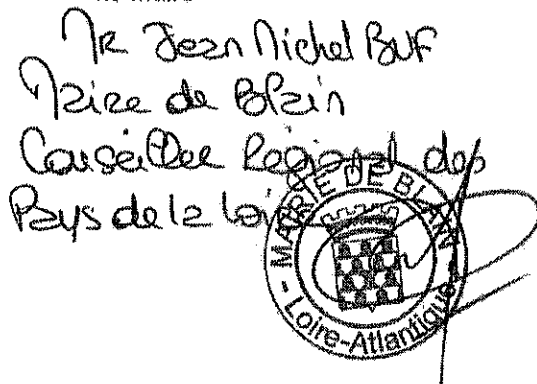 Mr Jean Michel BUF
Maire de Blain
Conseiller Régional des
Pays de la Loire
MAIRIE DE BLAIN
- Loire-Atlantique -